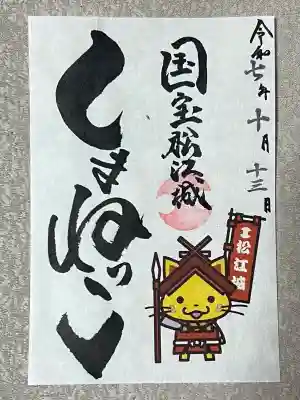 令和七年十月十三日
国宝松江城
しまねっこ
国宝松江城